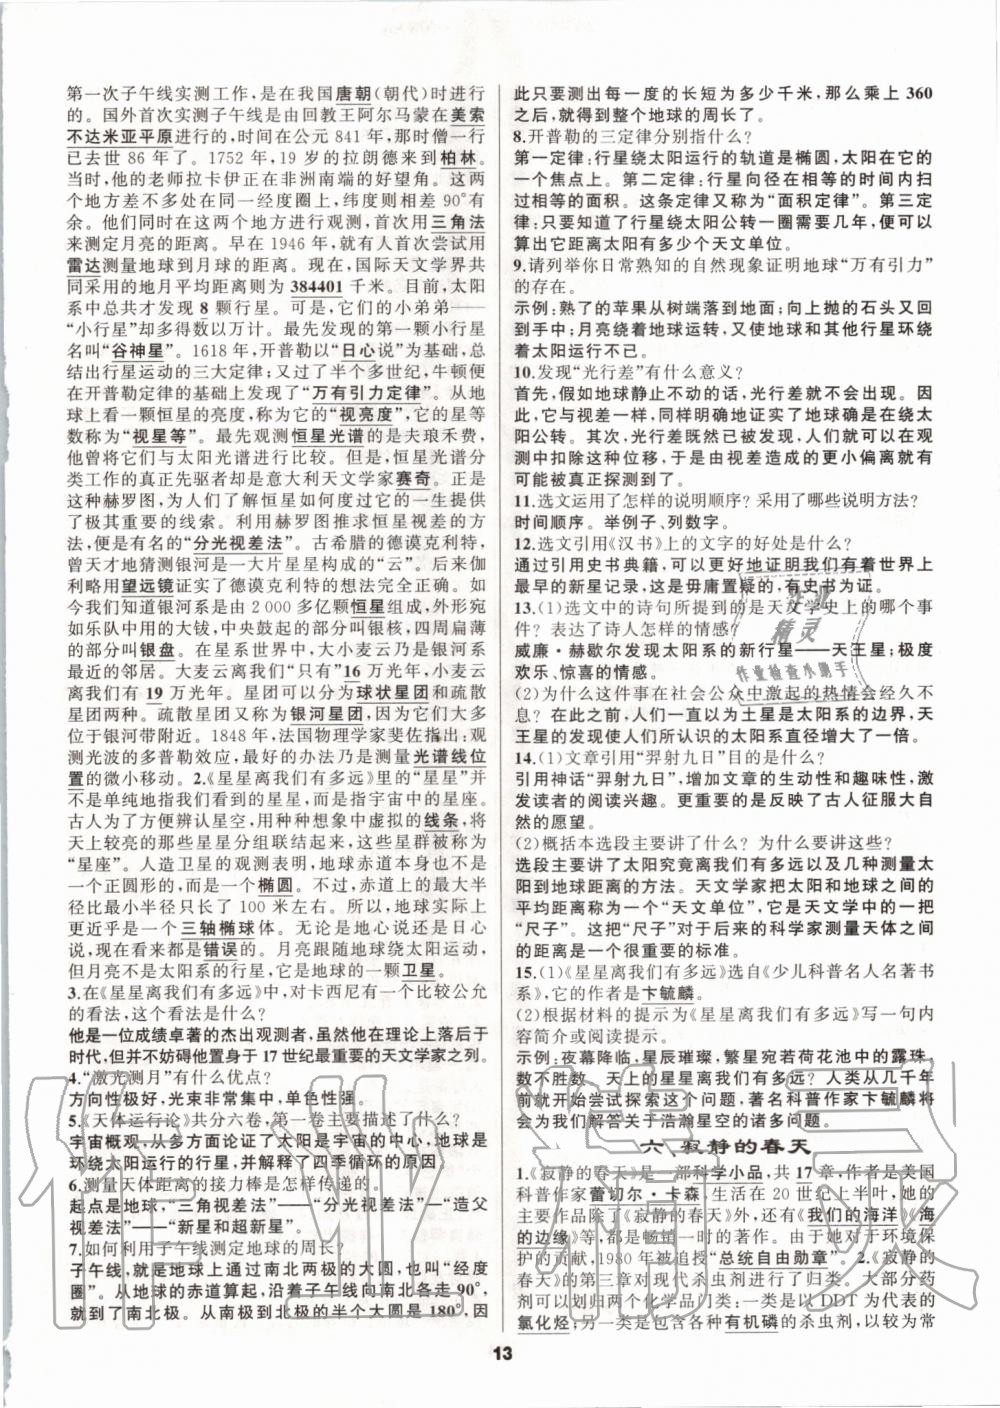 第一次子午线实测工作，是在我国唐朝(朝代)时进行
的。国外首次实测子午线是由回教王阿尔马蒙在美索
不达米亚平原进行的，时间在公元 841 年，那时僧一行
已去世 86 年了。1752 年，19 岁的拉朗德来到柏林。
当时，他的老师拉卡伊正在非洲南端的好望角。这两
个地方差不多处在同一经度圈上，纬度则相差 90°有
余。他们同时在这两个地方进行观测，首次用三角法
来测定月亮的距离。早在 1946 年，就有人首次尝试用
雷达测量地球到月球的距离。现在，国际天文学界共
同采用的地月平均距离则为 384401 千米。目前，太阳
系中总共才发现 8 颗行星。可是，它们的小弟弟——
“小行星”却多得数以万计。最先发现的第一颗小行星
名叫“谷神星”。1618 年，开普勒以“日心说”为基础，总
结出行星运动的三大定律；又过了半个多世纪，牛顿便
在开普勒定律的基础上发现了“万有引力定律”。从地
球上看一颗恒星的亮度，称为它的“视亮度”，它的星等
数称为“视星等”。最先观测恒星光谱的是夫琅禾费，
他曾将它们与太阳光谱进行比较。但是，恒星光谱分
类工作的真正先驱者却是意大利天文学家赛奇。正是
这种赫罗图，为人们了解恒星如何度过它的一生提供
了极其重要的线索。利用赫罗图推求恒星视差的方
法，便称为“分光视差法”。古希腊的德谟克利特，
曾天才地猜测银河是一大片星星构成的“云”。后来伽
利略用望远镜证实了德谟克利特的想法完全正确。如
今我们知道银河系是由 2 000 多亿颗恒星组成，外形宛
如乐队中用的大钹，中央鼓起的部分叫银核，四周扁薄
的部分叫银盘。在星系世界中，大小麦云乃是银河系
最近的邻居。大麦云离我们“只有”16 万光年，小麦云
离我们有 19 万光年。星团可以分为球状星团和疏散
星团两种。疏散星团又称为银河星团，因为它们大多
位于银河带附近。1848 年，法国物理学家斐佐指出：观
测光波的多普勒效应，最好的办法乃是测量光谱线位
置的微小移动。2.《星星离我们有多远》里的“星星”并
不是单纯地指我们看到的星星，而是指宇宙中的星座。
古人为了方便辨认星空，用种种想象中虚拟的线条，将
天上较亮的那些星星分组联结起来，这些星群被称为
“星座”。人造卫星的观测表明，地球赤道本身也不是
一个正圆形的，而是一个椭圆。不过，赤道上的最大半
径比最小半径只长了 100 米左右。所以，地球实际上
更近乎是一个三轴椭球体。无论是地心说还是日心
说，现在看来都是错误的。月亮跟随地球绕太阳运动，
但月亮不是太阳系的行星，而是地球的一颗卫星。
3.在《星星离我们有多远》中，对卡西尼有一个比较公允
的看法，这个看法是什么？
他是一位成绩卓著的杰出观测者，虽然他在理论上落后于
时代，但并不妨碍他置身于 17 世纪最重要的天文学家之列。
4.“激光测月”有什么优点？
方向性极好，光束非常集中，单色性强。
5.《天体运行论》共分六卷，第一卷主要描述了什么？
宇宙概观，从多方面论证了太阳是宇宙的中心，地球是
环绕太阳运行的行星，并解释了四季循环的原因。
6.测量天体距离的接力棒是怎样传递的。
起点是地球，“三角视差法”——“分光视差法”——“造父
视差法”——“新星和超新星”。
7.如何利用子午线测定地球的周长？
子午线，就是地球上通过南北两极的大圆，也叫“经度
圈”。从地球的赤道算起，沿着子午线向南北各走 90°，
就到了南北极。从南极到北极的半个大圆是 180°，因
此只要测出每一度的长短为多少千米，那么乘上 360
之后，就得到整个地球的周长了。
8.开普勒的三定律分别指什么？
第一定律：行星绕太阳运行的轨道是椭圆，太阳在它的
一个焦点上。第二定律：行星向径在相等的时间内扫
过相等的面积。这条定律又称为“面积定律”。第三定
律：只要知道了行星绕太阳公转一圈需要几年，便可以
算出它距离太阳有多少个天文单位。
9.请列举你日常熟知的自然现象证明地球“万有引力”
的存在。
示例：熟了的苹果从树端落到地面；向上抛的石头又回
到手中；月亮绕着地球运转，又使地球和其他行星环绕
着太阳运行不已。
10.发现“光行差”有什么意义？
首先，假如地球静止不动的话，光行差就不会出现。因
此，它与视差一样，同样明确地证实了地球确是在绕太
阳公转。其次，光行差既然已被发现，人们就可以在观
测中扣除这种位移，于是由视差造成的更小偏离就有
可能被真正探测到了。
11.选文运用了怎样的说明顺序？采用了哪些说明方法？
时间顺序。举例子、列数字。
12.选文引用《汉书》上的文字的好处是什么？
通过引用史书典籍，可以更好地证明我们有着世界上
最早的新星记录，这是毋庸置疑的，有史书为证。
13.(1)选文中的诗句所提到的是天文学史上的哪个事
件？表达了诗人怎样的情感？
威廉·赫歇尔发现太阳系的新行星——天王星；极度
欢乐、惊喜的情感。
(2)为什么这件事在社会公众中激起的热情会经久不
息？在此之前，人们一直以为土星是太阳系的边界，天
王星的发现使人们所认识的太阳系直径增大了一倍。
14.(1)文章引用“羿射九日”目的是什么？
引用神话“羿射九日”，增加文章的生动性和趣味性，激
发读者的阅读兴趣。更重要的是反映了古人征服大自
然的愿望。
(2)概括本选段主要讲了什么？为什么要讲这些？
选段主要讲了太阳究竟离我们有多远以及几种测量太
阳到地球距离的方法。天文学家把太阳和地球之间的
平均距离称为一个“天文单位”，它是天文学中的一把
“尺子”。这把“尺子”对于后来的科学家测量天体之间
的距离是一个很重要的标准。
15.(1)《星星离我们有多远》选自《少儿科普名人名著书
系》，它的作者是卞毓麟。
(2)根据材料的提示为《星星离我们有多远》写一句内
容简介或阅读提示。
示例：夜幕降临，星辰璀璨，繁星宛若荷花池中的露珠，
数不胜数，天上的星星离我们有多远？人类从几千年
前就开始尝试探索这个问题，著名科普作家卞毓麟将
会为我们解答关于浩瀚星空的诸多问题。
六、寂静的春天
1.《寂静的春天》是一部科学小品，共 17 章，作者是美国
科普作家蕾切尔·卡森，生活在 20 世纪上半叶，她的
主要作品除了《寂静的春天》外，还有《我们的海洋》《海
的边缘》等，都是畅销一时的著作。由于她对于环境保
护的贡献，1980 年被追授“总统自由勋章”。2.《寂静的
春天》的第三章对现代杀虫剂进行了归类。大部分药
剂可以划分为两个化学品门类：一类是以 DDT 为代表的
氯化烃；另一类是包含各种有机磷的杀虫剂，以较为常
13
作业精灵
作业检查小助手